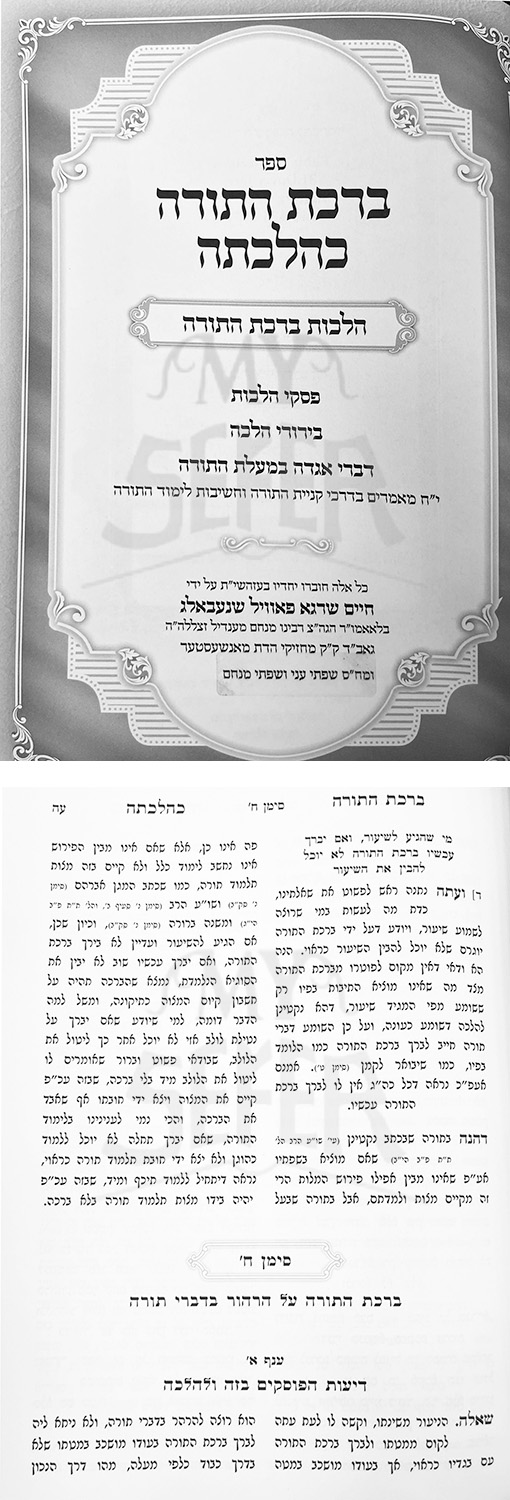 ספר
ברכת התורה
כהלכתה
הלכות ברכת התורה
פסקי הלכות
בירורי הלכה
דברי אגדה במעלת התורה
י"ח מאמרים בדרכי קניית התורה וחשיבות לימוד התורה
MY
SEFER
כל אלה חוברו יחדיו בעזהשי"ת על ידי
חיים שרגא פאוויל שנעבאלג
בלאאמו"ר הגה"צ רבינו מנחם מענדיל זצללה"ה
גאב"ד ק"ק מחזיקי הדת מאנשעסטער
ומח"ס שפתי עני ושפתי מנחם
ברכת התורה
סימן ח'
כהלכתה
עה
מי שהגיע לשיעור, ואם יברך
עכשיו ברכת התורה לא יוכל
להבין את השיעור
ד) ועתה נתנה ראש לפשוט את שאלתינו,
כדת מה לעשות במי שרוצה
לשמוע שיעור, ויודע דעל ידי ברכת התורה
יוגרס שלא יוכל להבין השיעור כראוי. הנה
הא ודאי דאין מקום לפוטרו מברכת התורה
מצד מה שאינו מוציא התיבות בפיו רק
ששומע מפי המגיד שיעור, דהא נקטינן
להלכה דשומע כעונה, ועל כן השומע דברי
תורה חייב לברך ברכת התורה כמו הלומד
בפיו, כמו שיבואר לקמן (סימן ט'). אמנם
אעפ"כ נראה דכל כה"ג אין לו לברך ברכת
התורה עכשיו.
דהנה בתורה שבכתב נקטינן (עי' שו"ע הרב הל'
ת"ת פ"ב הי"ב) שאם מוציא בשפתיו
אע"פ שאינו מבין אפילו פירוש המלות הרי
זה מקיים מצות ולמדתם, אבל בתורה שבעל
פה אינו כן, אלא שאם אינו מבין הפירוש
אינו נחשב לימוד כלל ולא קיים בזה מצות
תלמוד תורה, כמו שכתב המגן אברהם (סימן
נ' סק"ב) ושו"ע הרב (סימן נ' סעיף ב', והל' ת"ת פ"ב
הי"ב) ומשנה ברורה (סימן נ' סק"ב), וכיון שכן,
אם הגיע להשיעור ועדיין לא בירך ברכת
התורה, ואם יברך עכשיו שוב לא יבין את
הסוגיא הנלמדת, נמצא שהברכה תהיה על
חשבון קיום המצוה כתיקונה, ומשל למה
הדבר דומה, למי שיודע שאם יברך על
נטילת לולב אזי לא יוכל אחר כך ליטול את
הלולב, שבודאי פשוט וברור שאומרים לו
ליטול את הלולב מיד בלי ברכה, שבזה עכ"פ
קיים את המצוה ויצא ידי חובתו אף שאבד
את הברכה, והכי נמי לענינינו בלימוד
התורה, שאם יברך תחלה לא יוכל ללמוד
כהוגן ולא יצא ידי חובת תלמוד תורה כראוי,
נראה דיתחיל ללמוד תיכף ומיד, שבזה עכ"פ
יהיה בידו מצות תלמוד תורה בלא ברכה.
סימן ח'
ברכת התורה על הרהור בדברי תורה
ענף א'
דיעות הפוסקים בזה ולהלכה
שאלה. הניעור משינתו, וקשה לו לעת עתה
לקום ממטתו ולברך ברכת התורה
עם בגדיו כראוי, אך בעודו מושכב במטה
הוא רוצה להרהר בדברי תורה, ולא ניחא ליה
לברך ברכת התורה בעודו מושכב במטתו שלא
בדרך כבוד כלפי מעלה, מהו דרך הנכון
MY
SEFER